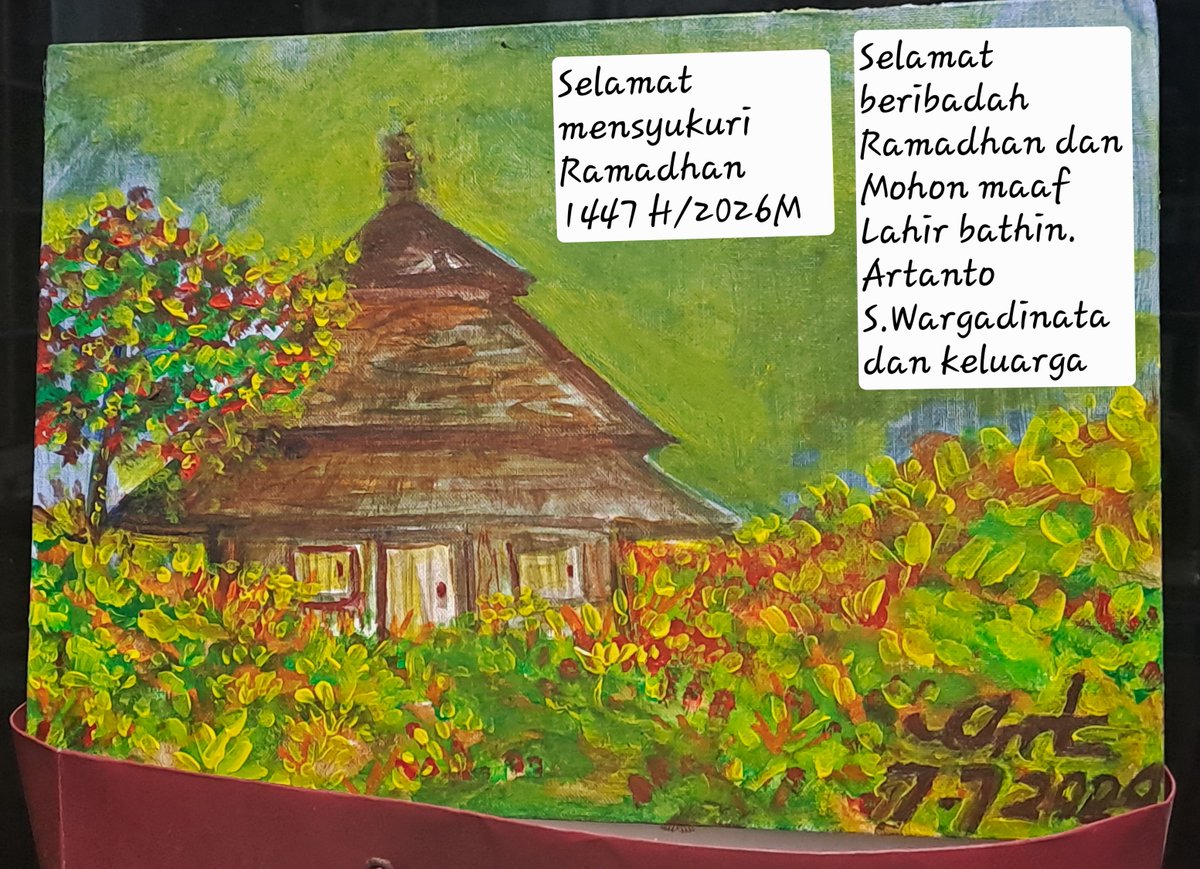 Selamat
mensyukuri
Ramadhan
1447 H/2026M
Selamat
beribadah
Ramadhan dan
Mohon maaf
Lahir bathin.
Artanto
S.Wargadinata
dan keluarga
Art
7-7 2020